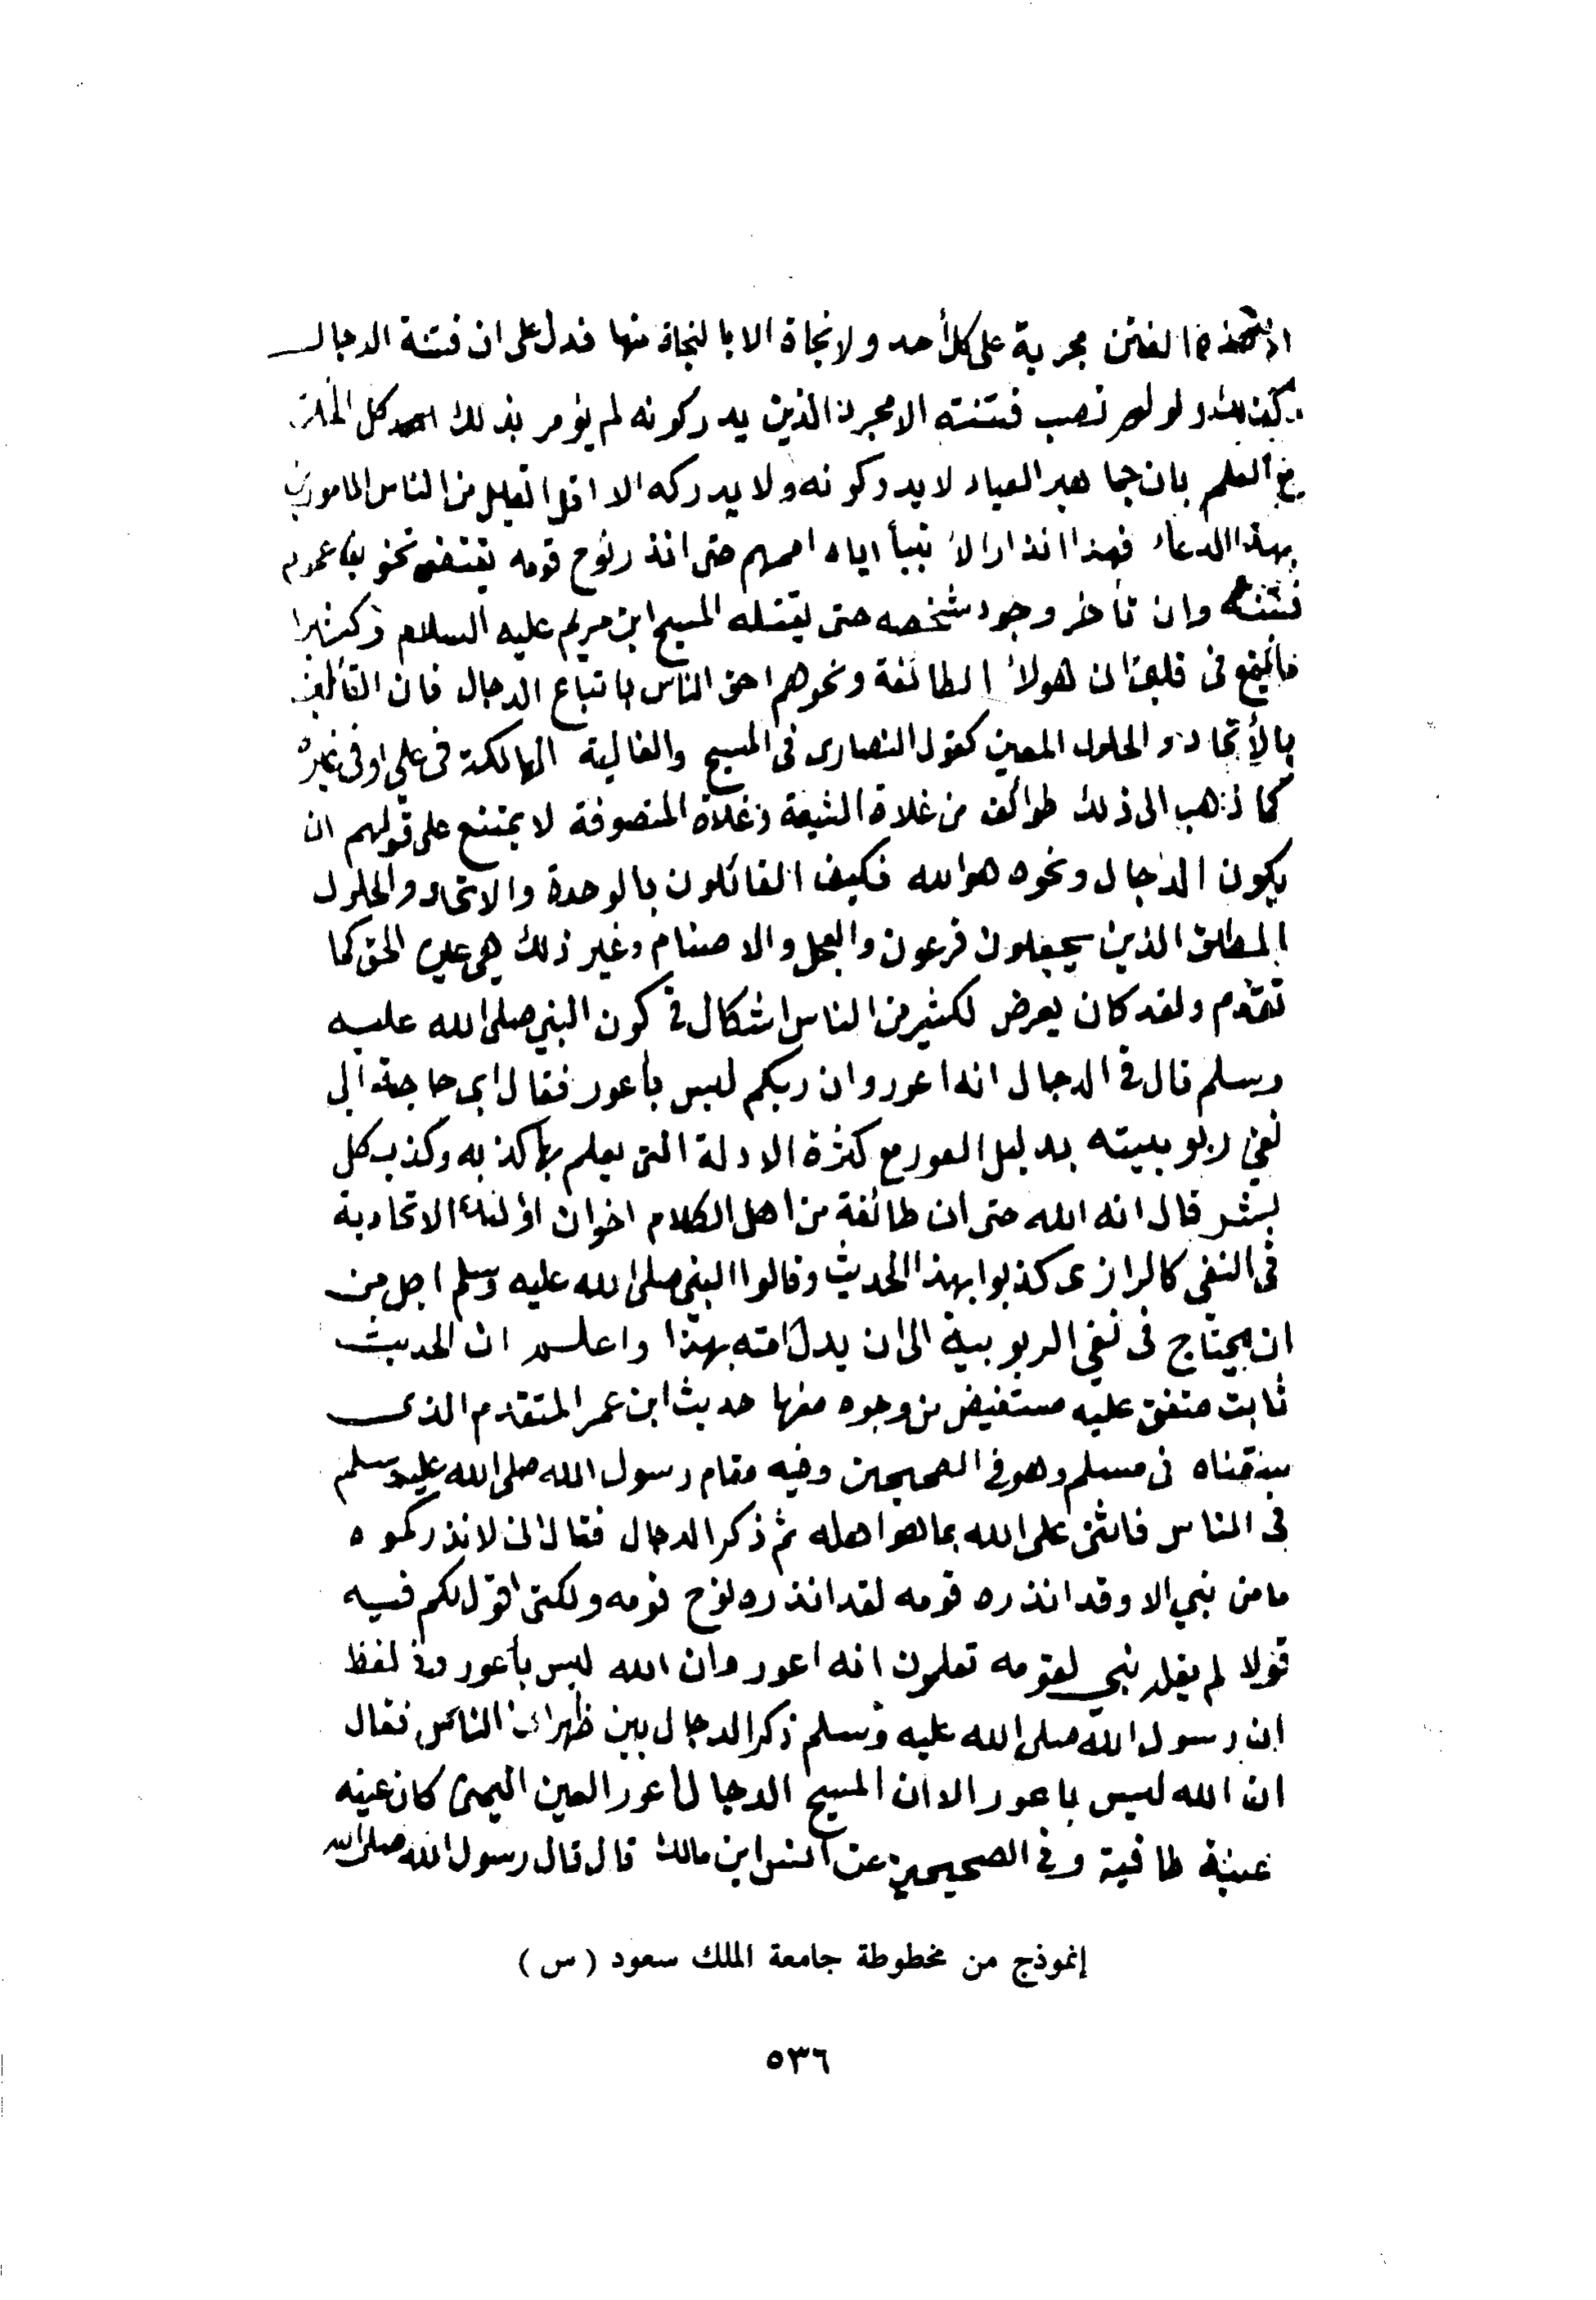 الفتن مجربة على كل أحد ولا نجاة الا بالنجاة منها فدل على ان فتنة الدجال
ولو لم تصب فتنته الا مجرد الذين يدركونه لم يؤمر بذلك كل
العلم بان جماهير العباد لا يدركونه ولا يدركه الا اقل القليل من الناس المامورين
بهذا الدعاء فهذا انذار الانبيأ اياه اممهم حتى انذر نوح قومه يقتضى عموم
فتنته وان تأخر وجود شخصه حتى يقتله المسيح ابن مريم عليه السلام وكثيرا
ما يقع فى قلبى ان هولاء الطائفة ونحوهم احق الناس باتباع الدجال فان القائلين
بالأتحاد و الحلول المعين كقول النصارى فى المسيح والغالية الهالكة فى على او فى غيره
كما ذهب الى ذلك طوائف من غلاة الشيعة وغلاة المتصوفة لا يمتنع على قولهم ان
يكون الدجال ونحوه هو الله فكيف القائلون بالوحدة والاتحاد والحلول
المطلق الذين يجعلون فرعون والعجل والاصنام وغير ذلك هى عين الحق كما
تقدم ولقد كان يعرض لكثير من الناس اشكال فى كون النبي صلى الله عليه
وسلم قال فى الدجال انه اعور وان ربكم ليس بأعور فقال اى حاجة الى
نفي ربوبيته بدليل العور مع كثرة الادلة التى يعلم بها كذبه وكذب كل
بشر قال انه الله حتى ان طائفة من اهل الكلام اخوان اولئك الاتحادية
فى النفي كالرازى كذبوا بهذا الحديث وقالوا النبي صلى الله عليه وسلم اجل من
ان يحتاج فى نفي الربوبية الى ان يدل امته بهذا واعلم ان الحديث
ثابت متفق عليه مستفيض من وجوه منها حديث ابن عمر المتقدم الذى
سقناه فى مسلم وهو فى الصحيحين وفيه مقام رسول الله صلى الله عليه وسلم
فى الناس فاثنى على الله بما هو اهله ثم ذكر الدجال فقال انى لانذركموه
ما من نبي الا وقد انذره قومه لقد انذره نوح قومه ولكنى اقول لكم فيه
قولا لم يقله نبي لقومه تعلمون انه اعور وان الله ليس بأعور وفى لفظ
ان رسول الله صلى الله عليه وسلم ذكر الدجال بين ظهرانى الناس فقال
ان الله ليس باعور الا ان المسيح الدجال أعور العين اليمنى كان عينه
عنبة طافية وفى الصحيحين عن انس ابن مالك قال قال رسول الله صلى الله
إنموذج من مخطوطة جامعة الملك سعود (س)
٥٣٦